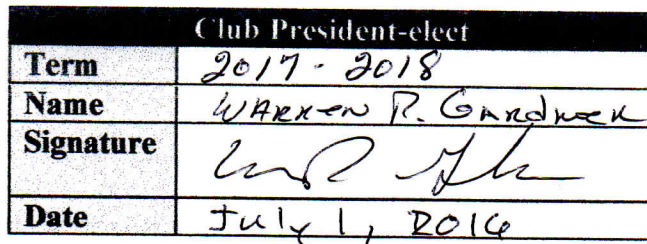 Club President-elect
Term 2017 - 2018
Name WARREN R. GARDNER
Signature
Date July 1, 2016